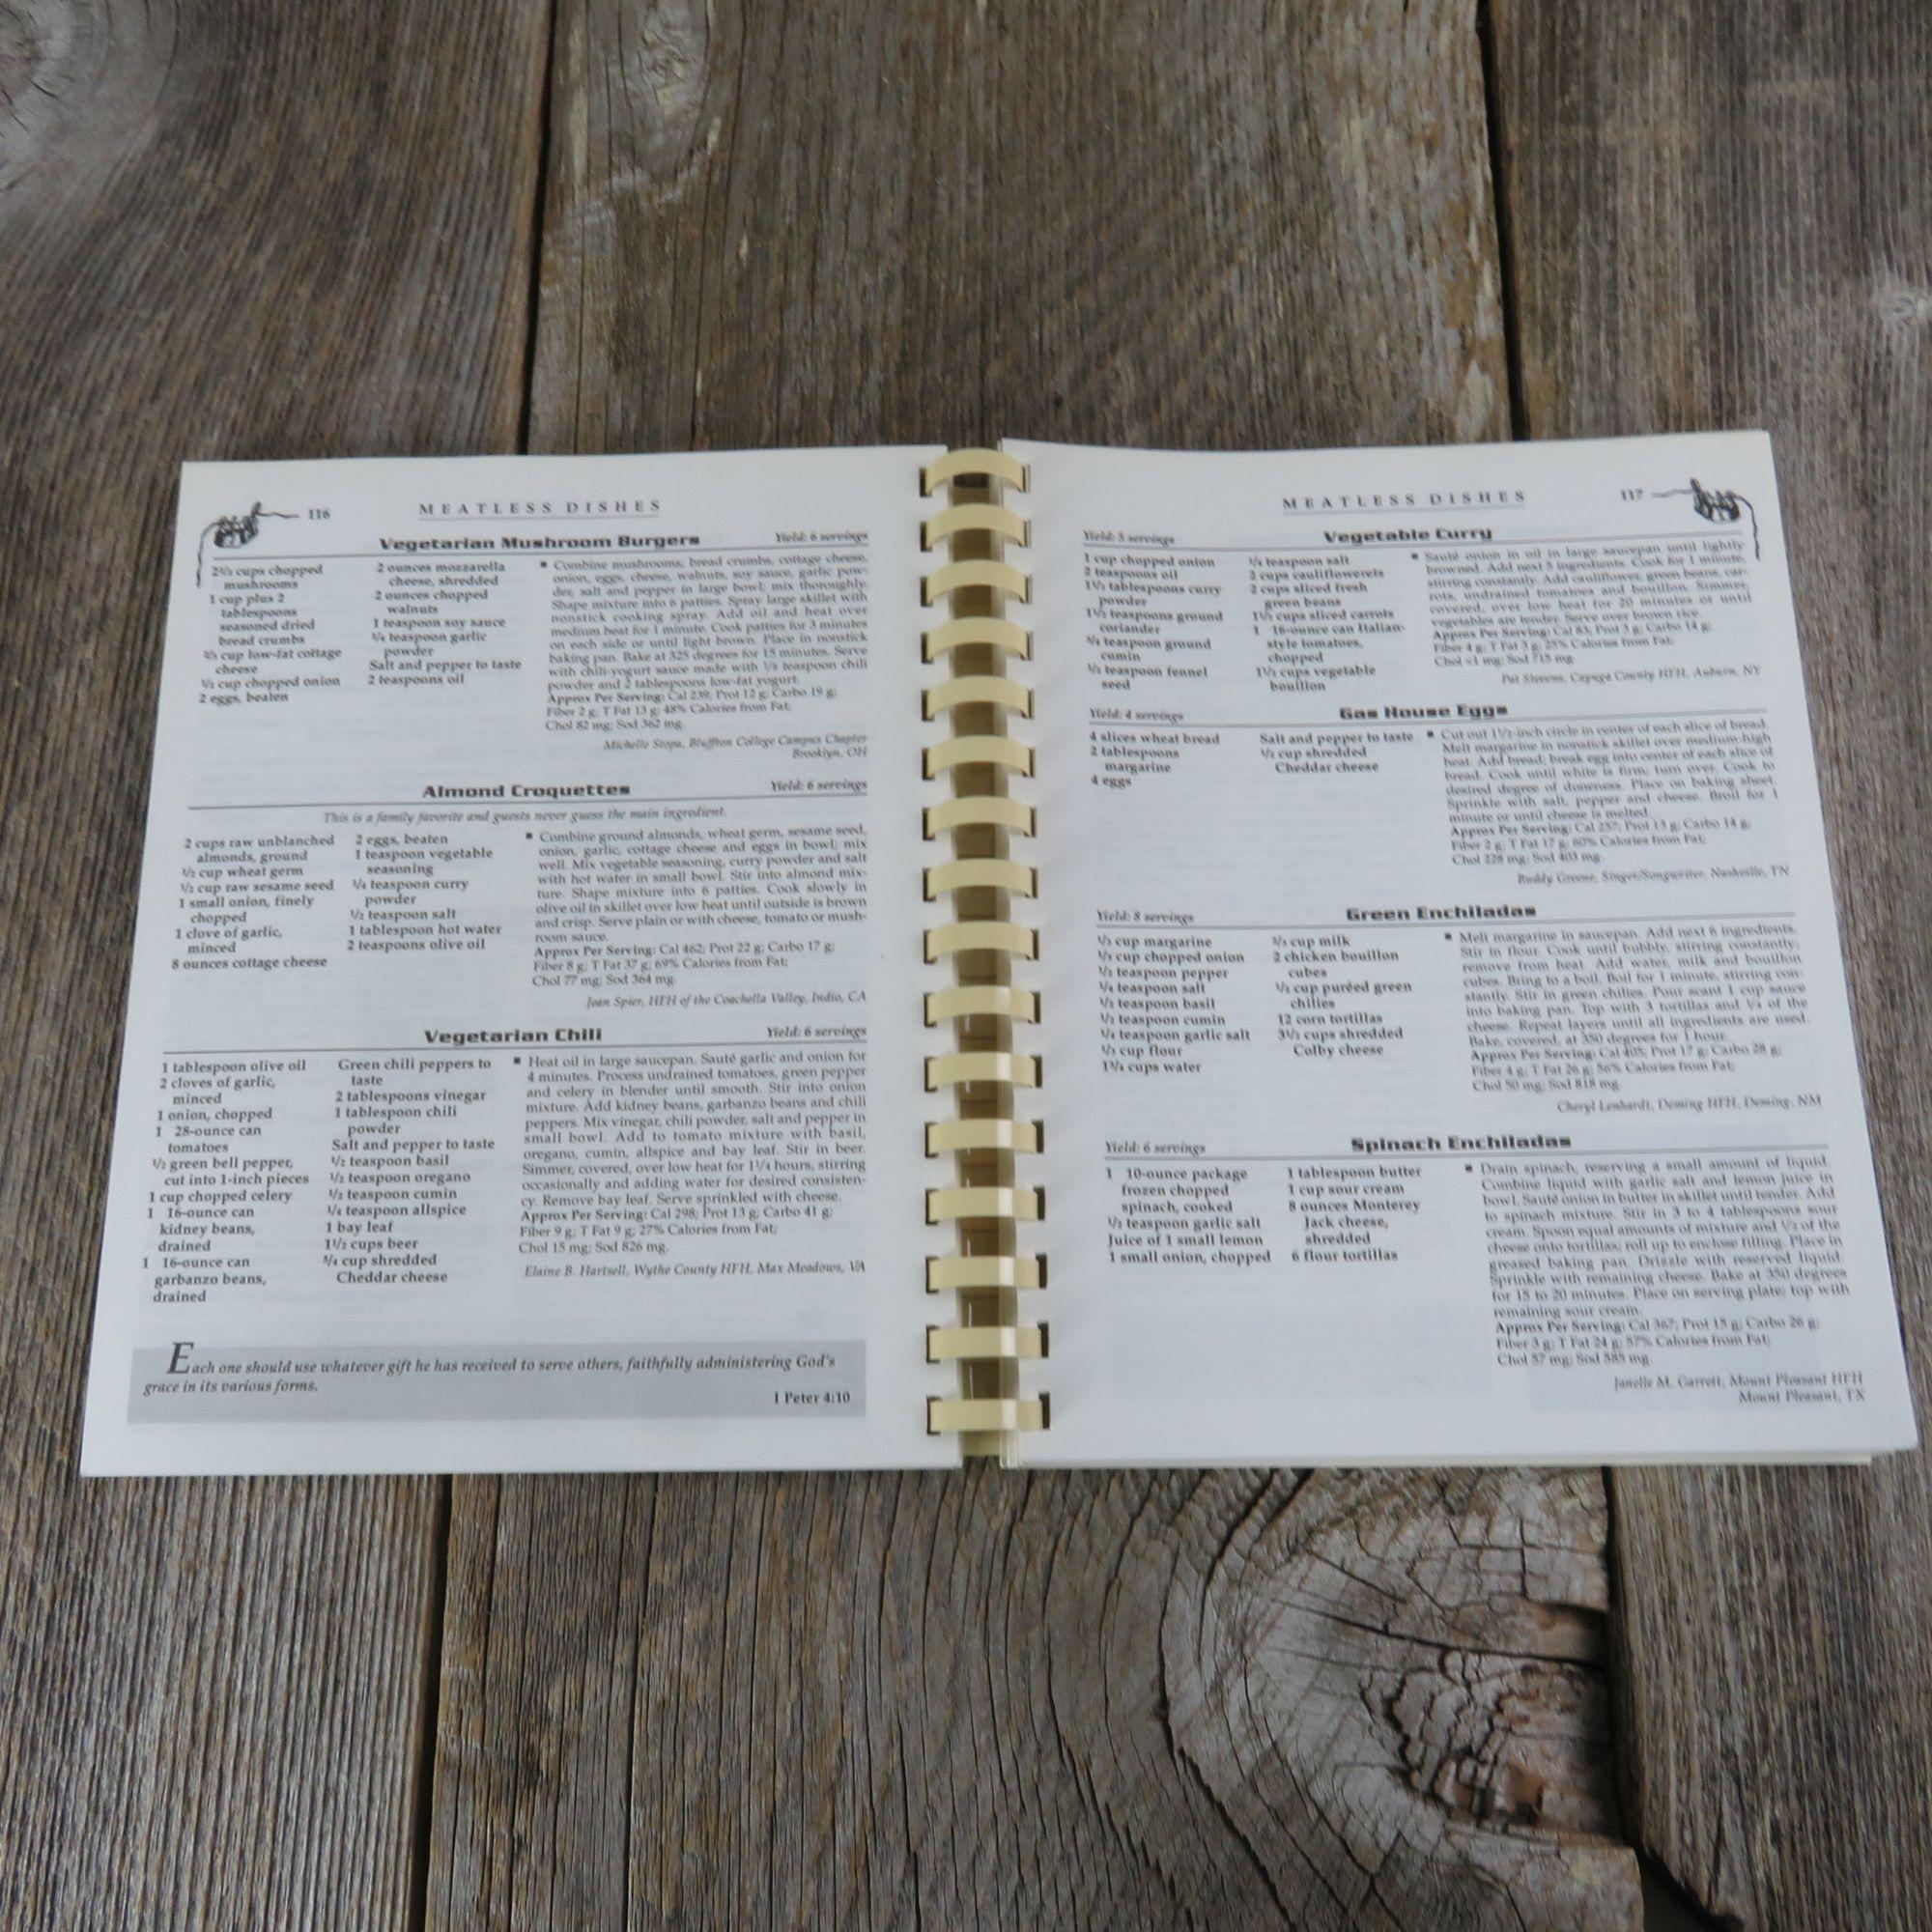 116
MEATLESS DISHES
Vegetarian Mushroom Burgers
Yield: 6 servings
2½ cups chopped
mushrooms
1 cup plus 2
tablespoons
seasoned dried
bread crumbs
⅔ cup low-fat cottage
cheese
½ cup chopped onion
2 eggs, beaten
2 ounces mozzarella
cheese, shredded
2 ounces chopped
walnuts
1 teaspoon soy sauce
¼ teaspoon garlic
powder
Salt and pepper to taste
2 teaspoons oil
■ Combine mushrooms, bread crumbs, cottage cheese,
onion, eggs, cheese, walnuts, soy sauce, garlic pow-
der, salt and pepper in large bowl; mix thoroughly.
Shape mixture into 6 patties. Spray large skillet with
nonstick cooking spray. Add oil and heat over
medium heat for 1 minute. Cook patties for 3 minutes
on each side or until light brown. Place in nonstick
baking pan. Bake at 325 degrees for 15 minutes. Serve
with chili-yogurt sauce made with ⅛ teaspoon chili
powder and 2 tablespoons low-fat yogurt.
Approx Per Serving: Cal 239; Prot 12 g; Carbo 19 g;
Fiber 2 g; T Fat 13 g; 48% Calories from Fat;
Chol 82 mg; Sod 362 mg.
Michelle Stopa, Bluffton College Campus Chapter
Brooklyn, OH
Almond Croquettes
Yield: 6 servings
This is a family favorite and guests never guess the main ingredient.
2 cups raw unblanched
almonds, ground
½ cup wheat germ
½ cup raw sesame seed
1 small onion, finely
chopped
1 clove of garlic,
minced
8 ounces cottage cheese
2 eggs, beaten
1 teaspoon vegetable
seasoning
¼ teaspoon curry
powder
½ teaspoon salt
1 tablespoon hot water
2 teaspoons olive oil
■ Combine ground almonds, wheat germ, sesame seed,
onion, garlic, cottage cheese and eggs in bowl; mix
well. Mix vegetable seasoning, curry powder and salt
with hot water in small bowl. Stir into almond mix-
ture. Shape mixture into 6 patties. Cook slowly in
olive oil in skillet over low heat until outside is brown
and crisp. Serve plain or with cheese, tomato or mush-
room sauce.
Approx Per Serving: Cal 462; Prot 22 g; Carbo 17 g;
Fiber 8 g; T Fat 37 g; 69% Calories from Fat;
Chol 77 mg; Sod 364 mg.
Jean Spier, HFH of the Coachella Valley, Indio, CA
Vegetarian Chili
Yield: 6 servings
1 tablespoon olive oil
2 cloves of garlic,
minced
1 onion, chopped
1 28-ounce can
tomatoes
½ green bell pepper,
cut into 1-inch pieces
1 cup chopped celery
1 16-ounce can
kidney beans,
drained
1 16-ounce can
garbanzo beans,
drained
Green chili peppers to
taste
2 tablespoons vinegar
1 tablespoon chili
powder
Salt and pepper to taste
½ teaspoon basil
½ teaspoon oregano
½ teaspoon cumin
¼ teaspoon allspice
1 bay leaf
1½ cups beer
¾ cup shredded
Cheddar cheese
■ Heat oil in large saucepan. Sauté garlic and onion for
4 minutes. Process undrained tomatoes, green pepper
and celery in blender until smooth. Stir into onion
mixture. Add kidney beans, garbanzo beans and chili
peppers. Mix vinegar, chili powder, salt and pepper in
small bowl. Add to tomato mixture with basil,
oregano, cumin, allspice and bay leaf. Stir in beer.
Simmer, covered, over low heat for 1¼ hours, stirring
occasionally and adding water for desired consisten-
cy. Remove bay leaf. Serve sprinkled with cheese.
Approx Per Serving: Cal 298; Prot 13 g; Carbo 41 g;
Fiber 9 g; T Fat 9 g; 27% Calories from Fat;
Chol 15 mg; Sod 826 mg.
Elaine B. Hartsell, Wythe County HFH, Max Meadows, VA
Each one should use whatever gift he has received to serve others, faithfully administering God's
grace in its various forms.
1 Peter 4:10
MEATLESS DISHES
117
Yield: 5 servings
Vegetable Curry
1 cup chopped onion
2 teaspoons oil
1½ tablespoons curry
powder
1½ teaspoons ground
coriander
¾ teaspoon ground
cumin
½ teaspoon fennel
seed
teaspoon salt
2 cups cauliflowerets
2 cups sliced fresh
green beans
1½ cups sliced carrots
1 16-ounce can Italian-
style tomatoes,
chopped
1½ cups vegetable
bouillon
■ Sauté onion in oil in large saucepan until lightly
browned. Add next 5 ingredients. Cook for 1 minute,
stirring constantly. Add cauliflower, green beans, car-
rots, undrained tomatoes and bouillon. Simmer,
covered, over low heat for 20 minutes or until
vegetables are tender. Serve over brown rice.
Approx Per Serving: Cal 83; Prot 3 g; Carbo 14 g;
Fiber 4 g; T Fat 3 g; 25% Calories from Fat;
Chol <1 mg; Sod 715 mg.
Pat Stevens, Cayuga County HFH, Auburn, NY
Yield: 4 servings
Gas House Eggs
4 slices wheat bread
2 tablespoons
margarine
4 eggs
Salt and pepper to taste
½ cup shredded
Cheddar cheese
■ Cut out 1½-inch circle in center of each slice of bread.
Melt margarine in nonstick skillet over medium-high
heat. Add bread; break egg into center of each slice of
bread. Cook until white is firm; turn over. Cook to
desired degree of doneness. Place on baking sheet.
Sprinkle with salt, pepper and cheese. Broil for 1
minute or until cheese is melted.
Approx Per Serving: Cal 257; Prot 13 g; Carbo 14 g;
Fiber 2 g; T Fat 17 g; 60% Calories from Fat;
Chol 228 mg; Sod 403 mg.
Buddy Greene, Singer/Songwriter, Nashville, TN
Yield: 8 servings
Green Enchiladas
⅓ cup margarine
⅓ cup chopped onion
½ teaspoon pepper
¼ teaspoon salt
½ teaspoon basil
½ teaspoon cumin
¼ teaspoon garlic salt
⅓ cup flour
1¾ cups water
⅓ cup milk
2 chicken bouillon
cubes
½ cup puréed green
chilies
12 corn tortillas
3½ cups shredded
Colby cheese
■ Melt margarine in saucepan. Add next 6 ingredients.
Stir in flour. Cook until bubbly, stirring constantly;
remove from heat. Add water, milk and bouillon
cubes. Bring to a boil. Boil for 1 minute, stirring con-
stantly. Stir in green chilies. Pour scant 1 cup sauce
into baking pan. Top with 3 tortillas and ¼ of the
cheese. Repeat layers until all ingredients are used.
Bake, covered, at 350 degrees for 1 hour.
Approx Per Serving: Cal 405; Prot 17 g; Carbo 28 g;
Fiber 4 g; T Fat 26 g; 56% Calories from Fat;
Chol 50 mg; Sod 818 mg.
Cheryl Lenhardt, Deming HFH, Deming, NM
Yield: 6 servings
Spinach Enchiladas
1 10-ounce package
frozen chopped
spinach, cooked
½ teaspoon garlic salt
Juice of 1 small lemon
1 small onion, chopped
1 tablespoon butter
1 cup sour cream
8 ounces Monterey
Jack cheese,
shredded
6 flour tortillas
■ Drain spinach, reserving a small amount of liquid.
Combine liquid with garlic salt and lemon juice in
bowl. Sauté onion in butter in skillet until tender. Add
to spinach mixture. Stir in 3 to 4 tablespoons sour
cream. Spoon equal amounts of mixture and ½ of the
cheese onto tortillas; roll up to enclose filling. Place in
greased baking pan. Drizzle with reserved liquid.
Sprinkle with remaining cheese. Bake at 350 degrees
for 15 to 20 minutes. Place on serving plate; top with
remaining sour cream.
Approx Per Serving: Cal 367; Prot 15 g; Carbo 26 g;
Fiber 3 g; T Fat 24 g; 57% Calories from Fat;
Chol 57 mg; Sod 585 mg.
Janelle M. Garrett, Mount Pleasant HFH
Mount Pleasant, TX